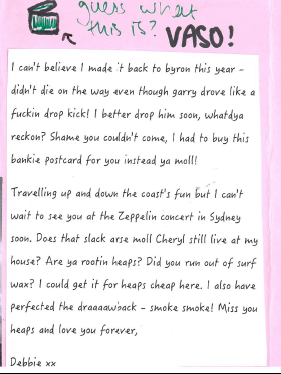 guess what
this is?
VASO!
I can't believe I made it back to byron this year -
didn't die on the way even though garry drove like a
fuckin drop kick! I better drop him soon, whatdya
reckon? Shame you couldn't come, I had to buy this
bankie postcard for you instead ya moll!
Travelling up and down the coast's fun but I can't
wait to see you at the Zeppelin concert in Sydney
soon. Does that slack arse moll Cheryl still live at my
house? Are ya rootin heaps? Did you run out of surf
wax? I could get it for heaps cheap here. I also have
perfected the draaaawback - smoke smoke! Miss you
heaps and love you forever,
Debbie xx